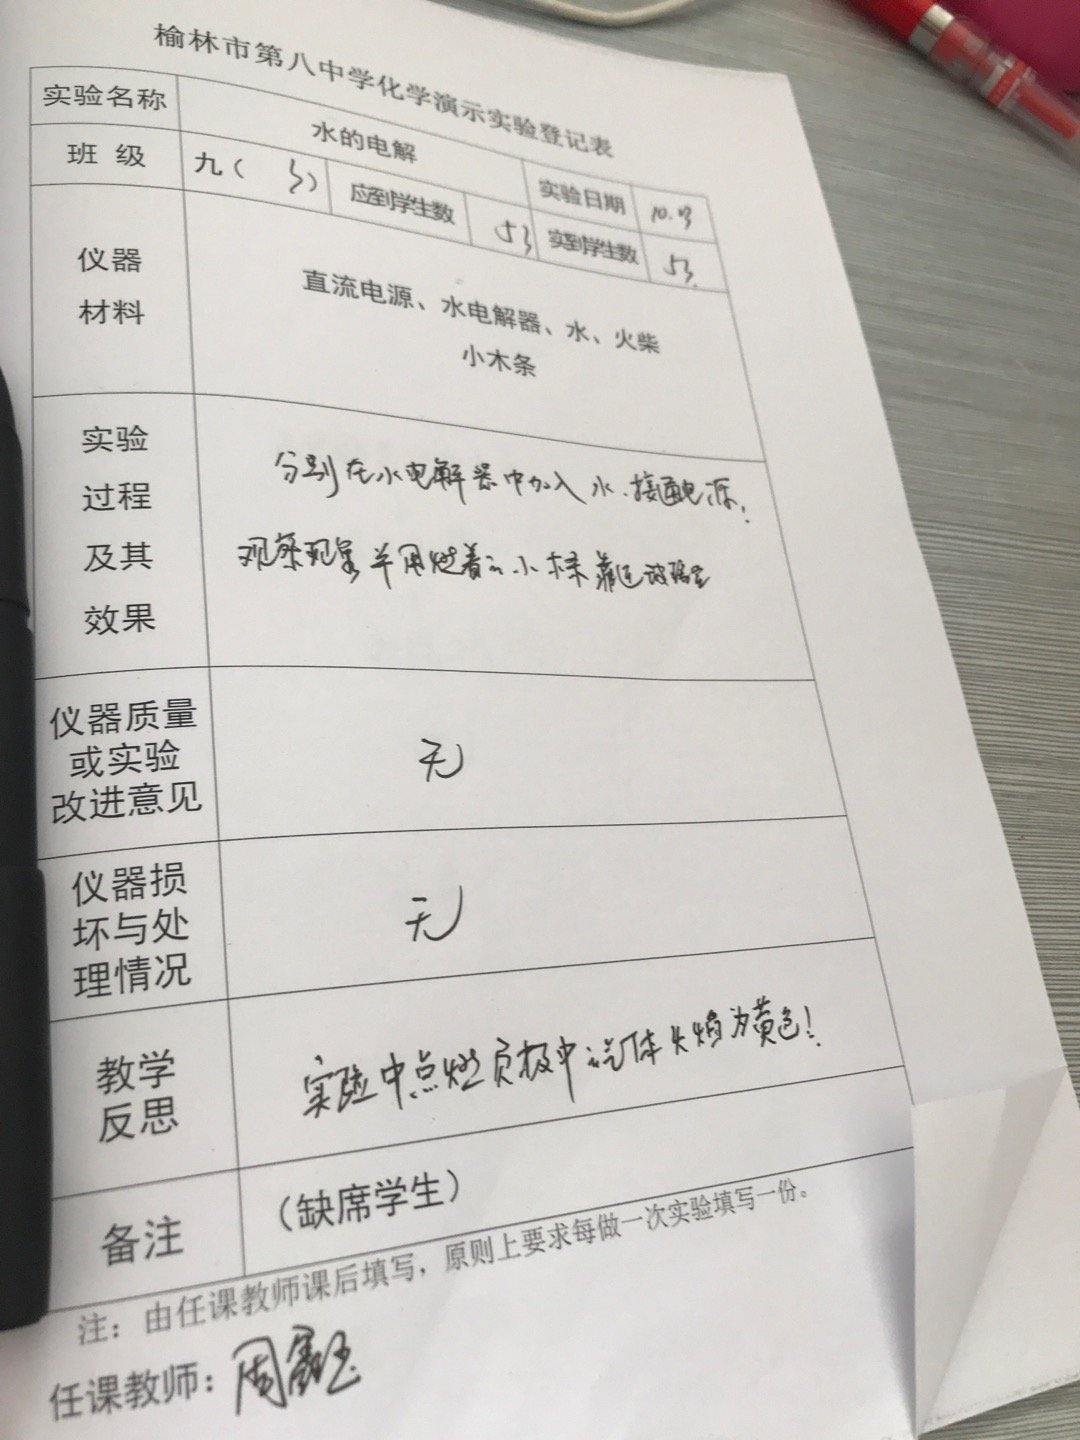 榆林市第八中学化学演示实验登记表
实验名称
水的电解
实验日期
班 级
九( 3)
应到学生数
53
实到学生数
53.
仪器
材料
直流电源、水电解器、水、火柴
小木条
实验
过程
及其
效果
分别在水电解器中加入水.接通电源,
观察现象并用燃着的小木条靠近玻璃管
仪器质量
或实验
改进意见
无
仪器损
坏与处
理情况
无
教学
反思
实验中点燃负极中气体火焰为黄色!
备注
(缺席学生)
注：由任课教师课后填写，原则上要求每做一次实验填写一份。
任课教师：周